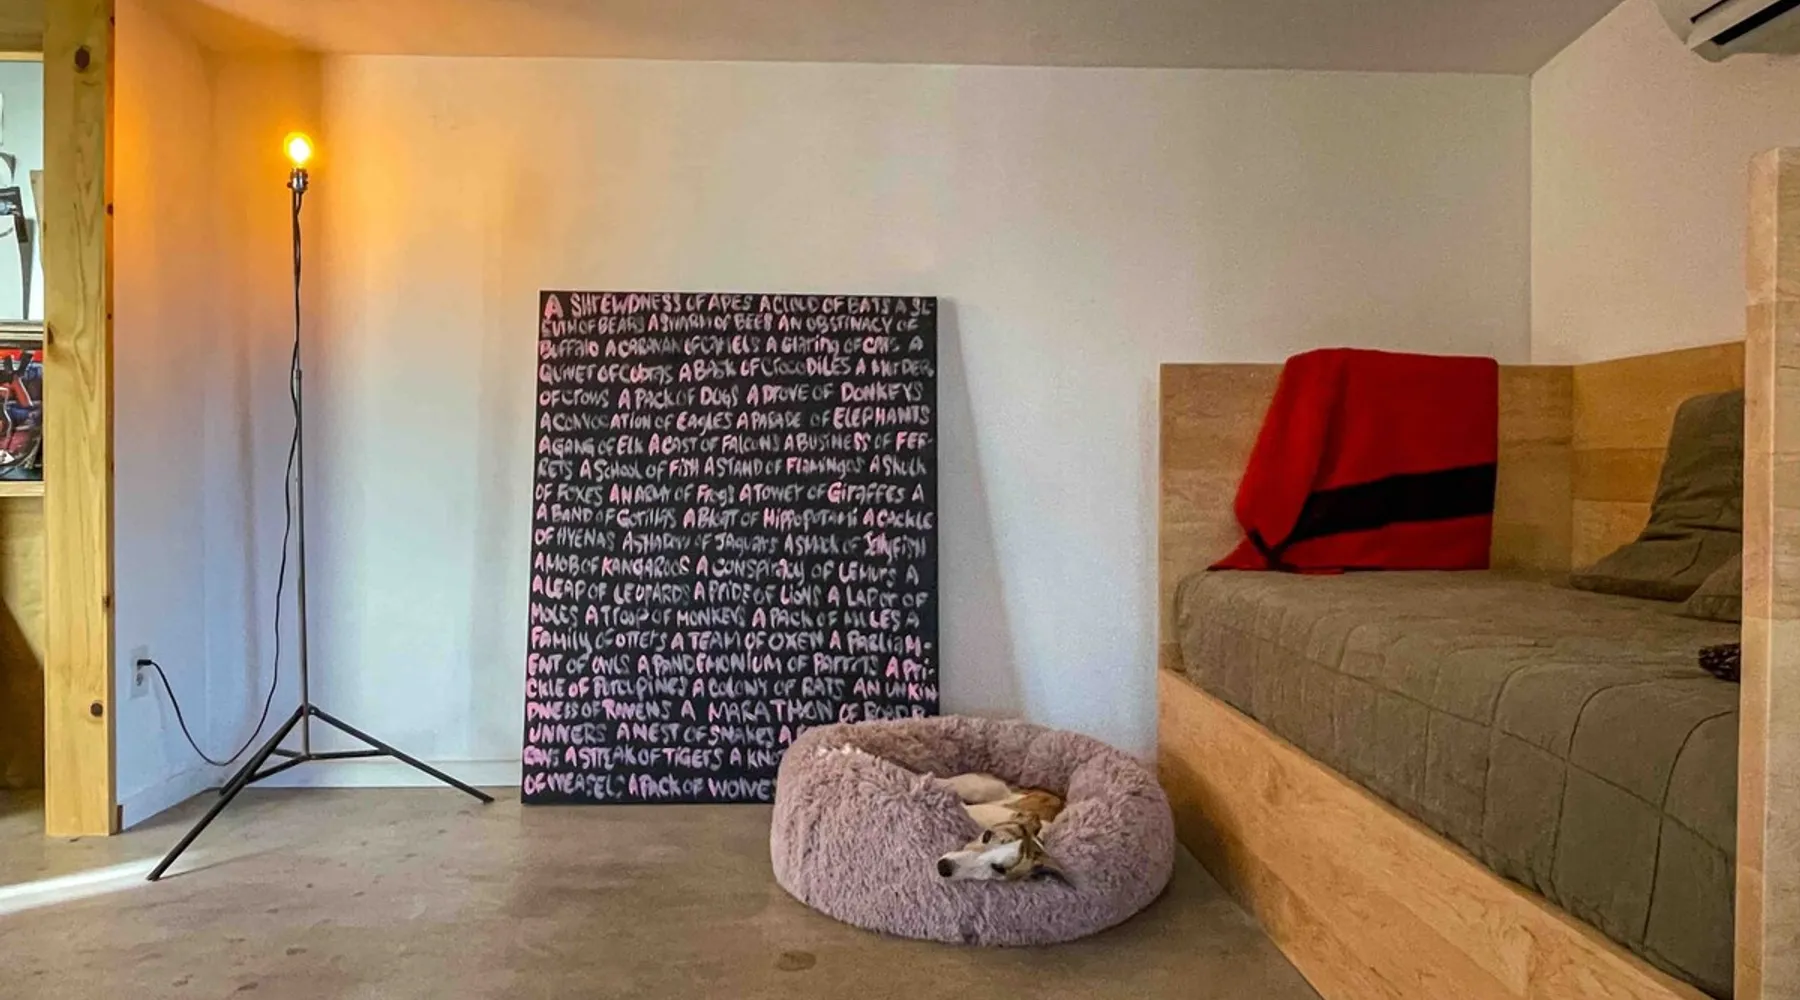 A SHREWDNESS OF APES A CLOUD OF BATS A SL-
EUTH OF BEARS A SWARM OF BEES AN OBSTINACY OF
BUFFALO A CARAVAN OF CAMELS A GLARING OF CATS A
QUIVER OF COBRAS A BASK OF CROCODILES A MURDER
OF CROWS A PACK OF DOGS A DROVE OF DONKEYS
A CONVOCATION OF EAGLES A PARADE OF ELEPHANTS
A GANG OF ELK A CAST OF FALCONS A BUSINESS OF FER-
RETS A SCHOOL OF FISH A STAND OF FLAMINGOS A SKULK
OF FOXES AN ARMY OF FROGS A TOWER OF GIRAFFES A
A BAND OF GORILLAS A BLOAT OF HIPPOPOTAMI A CACKLE
OF HYENAS A SHADOW OF JAGUARS A SMACK OF JELLYFISH
A MOB OF KANGAROOS A CONSPIRACY OF LEMURS A
A LEAP OF LEOPARDS A PRIDE OF LIONS A LABOR OF
MOLES A TROOP OF MONKEYS A PACK OF MULES A
FAMILY OF OTTERS A TEAM OF OXEN A PARLIAM-
ENT OF OWLS A PANDEMONIUM OF PARROTS A PRI-
CKLE OF PORCUPINES A COLONY OF RATS AN UNKIN
DNESS OF RAVENS A MARATHON OF ROADR
UNNERS A NEST OF SNAKES A
A STREAK OF TIGERS A
OF WEASELS A PACK OF WOLVES